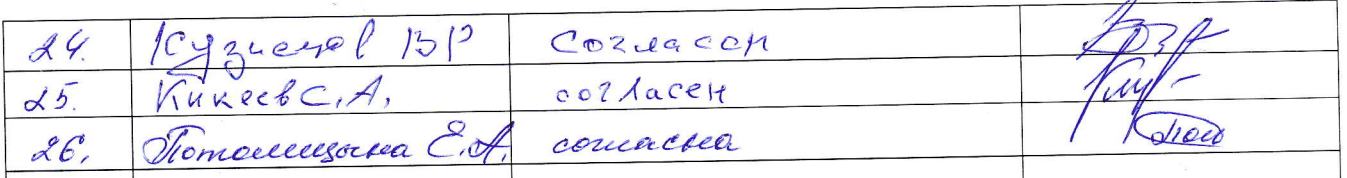 24. Кузнецов ВР Согласен
25. Кикеев С.А. согласен
26. Потомицына Е.А. согласна